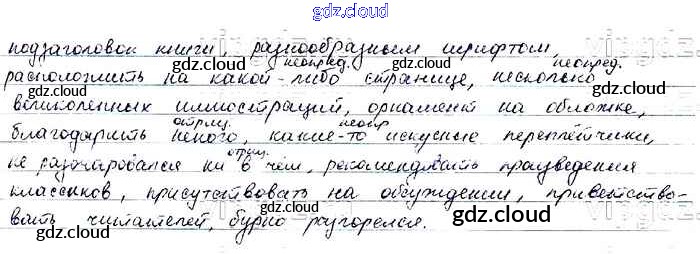 gdz.cloud
подзаголовок книги, разнообразным шрифтом,
неопред. неопред.
расположить на какой-либо странице, несколько
великолепных иллюстраций, орнамент на обложке,
отриц. неопр
благодарить некого, какие-то искусные переплётчики,
отриц.
не разочаровался ни в чём, рекомендовать произведения
классиков, присутствовать на обсуждении, приветство-
вать читателей, бурно разгорелся.
gdz.cloud